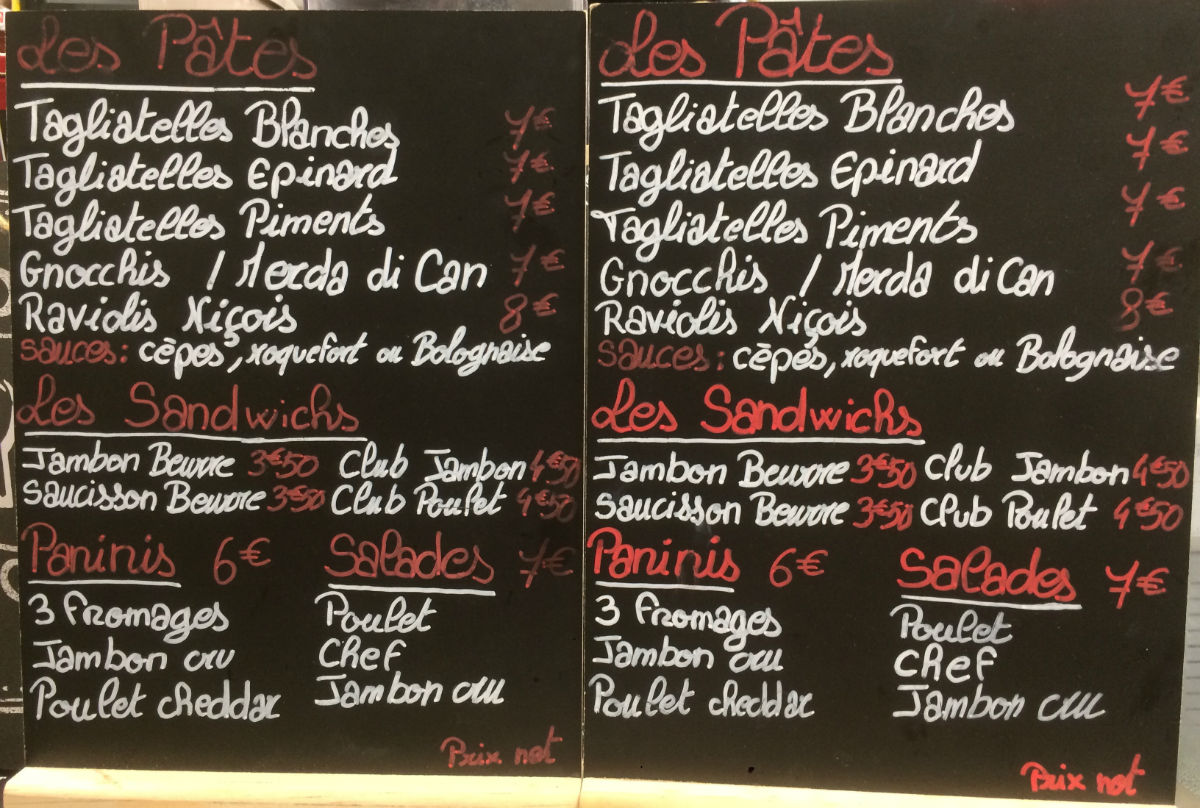 Les Pâtes
Tagliatelles Blanches 7€
Tagliatelles Epinard 7€
Tagliatelles Piments 7€
Gnocchis / Merda di Can 7€
Raviolis Niçois 8€
Sauces: cèpes, roquefort ou Bolognaise
Les Sandwichs
Jambon Beurre 3€50 Club Jambon 4€50
Saucisson Beurre 3€50 Club Poulet 4€50
Paninis 6€ Salades 7€
3 fromages Poulet
Jambon cru Chef
Poulet cheddar Jambon cru
Prix net
Les Pâtes
Tagliatelles Blanches 7€
Tagliatelles Epinard 7€
Tagliatelles Piments 7€
Gnocchis / Merda di Can 7€
Raviolis Niçois 8€
Sauces: cèpes, roquefort ou Bolognaise
Les Sandwichs
Jambon Beurre 3€50 Club Jambon 4€50
Saucisson Beurre 3€50 Club Poulet 4€50
Paninis 6€ Salades 7€
3 fromages Poulet
Jambon cru Chef
Poulet cheddar Jambon cru
Prix net